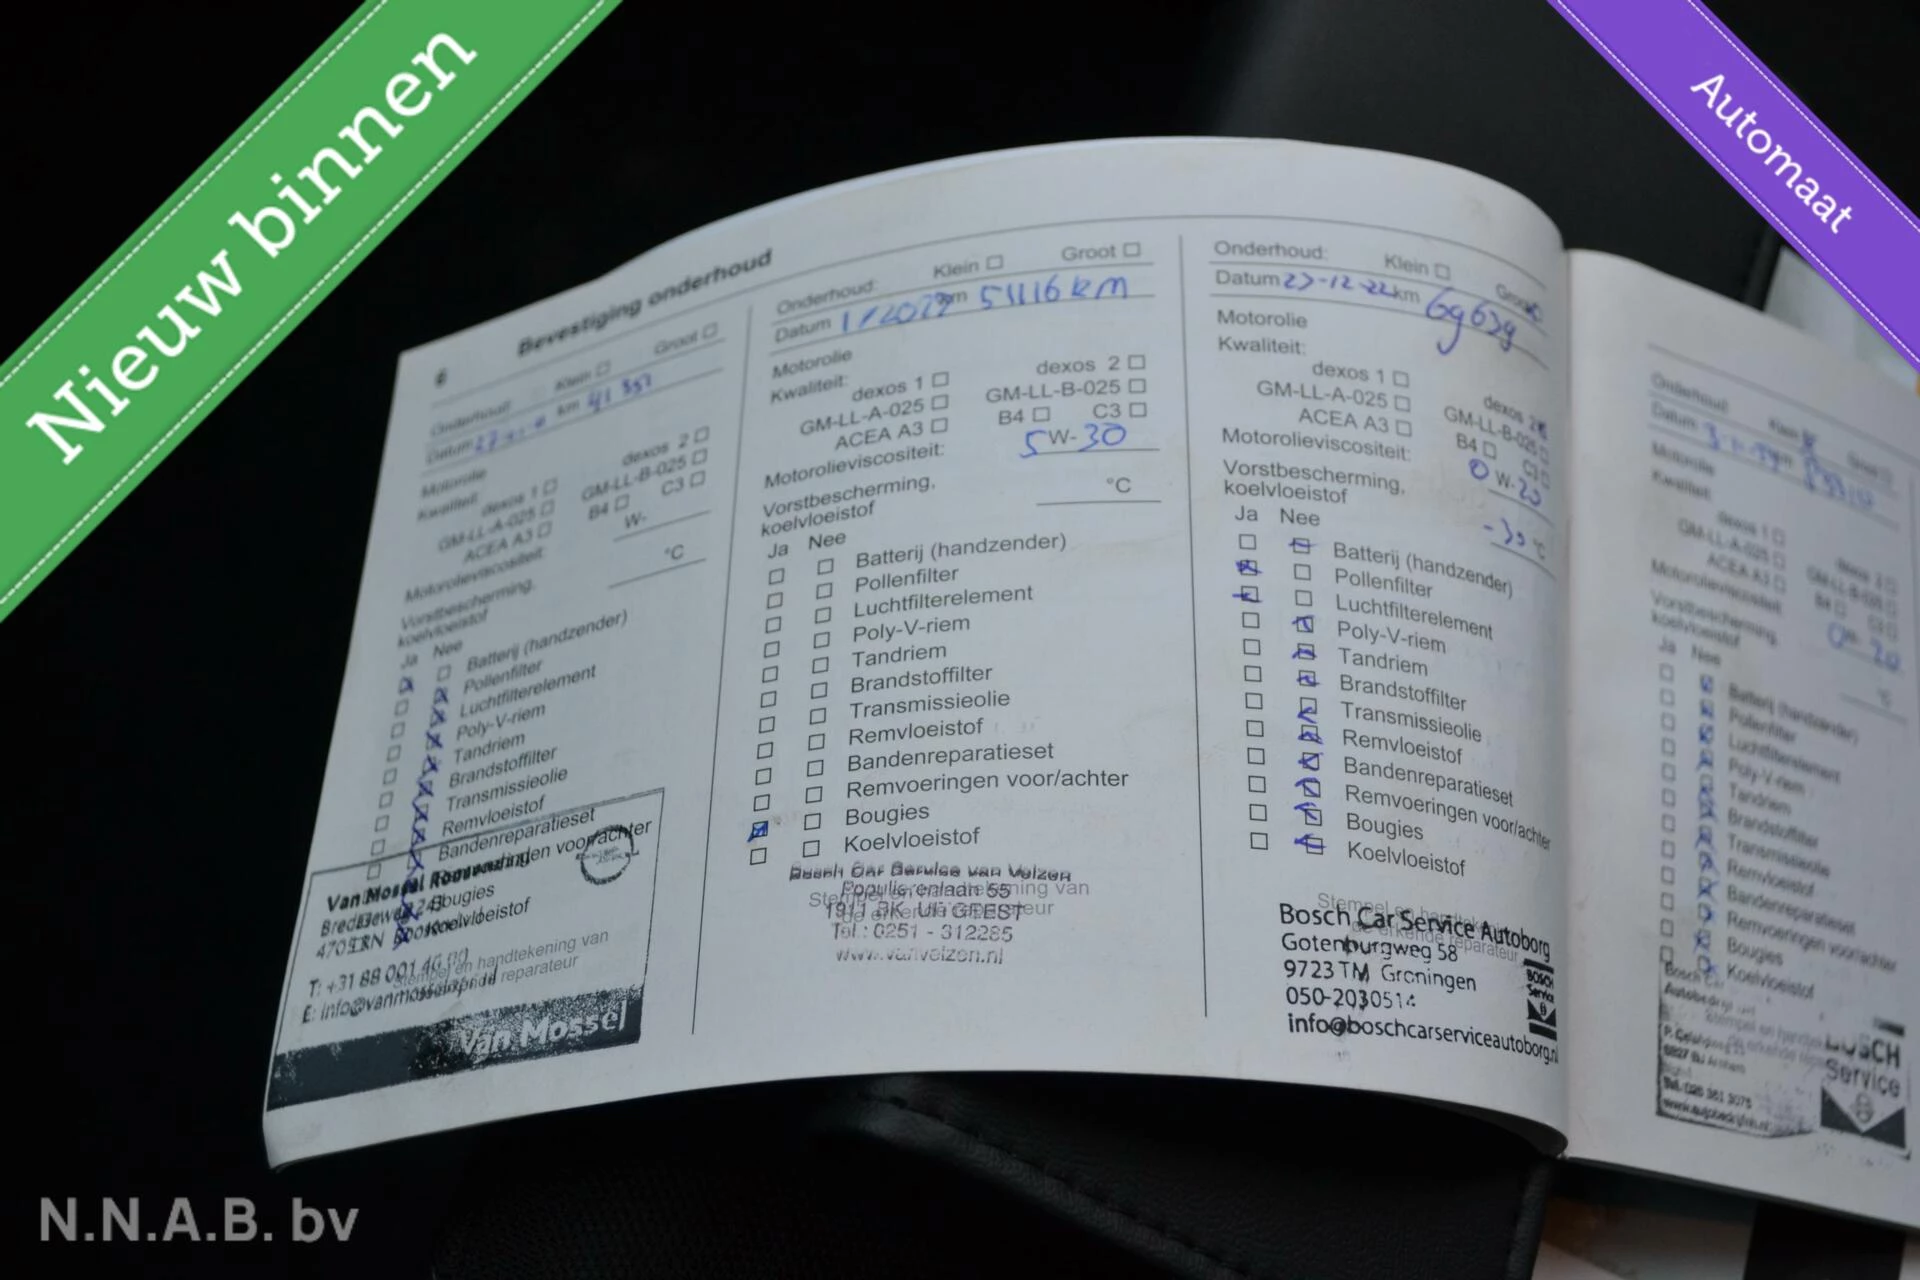 Nieuw binnen
Automaat
6 Bevestiging onderhoud
Onderhoud: Klein Groot
Datum km 41 351
Motorolie
Kwaliteit: dexos 1 dexos 2
GM-LL-A-025 GM-LL-B-025
ACEA A3 B4 C3
Motorolieviscositeit: W-
Vorstbescherming, °C
koelvloeistof
Ja Nee
Batterij (handzender)
Pollenfilter
Luchtfilterelement
Poly-V-riem
Tandriem
Brandstoffilter
Transmissieolie
Remvloeistof
Bandenreparatieset
Remvoeringen voor/achter
Bougies
Koelvloeistof
Stempel en handtekening van
de erkende reparateur
Van Mossel
T: +31 88 001 40 00
Van Mossel
Onderhoud: Klein Groot
Datum 1/2022 km 51116 km
Motorolie
Kwaliteit: dexos 1 dexos 2
GM-LL-A-025 GM-LL-B-025
ACEA A3 B4 C3
Motorolieviscositeit: 5 W-30
Vorstbescherming, °C
koelvloeistof
Ja Nee
Batterij (handzender)
Pollenfilter
Luchtfilterelement
Poly-V-riem
Tandriem
Brandstoffilter
Transmissieolie
Remvloeistof
Bandenreparatieset
Remvoeringen voor/achter
Bougies
Koelvloeistof
Stempel en handtekening van
de erkende reparateur
Bosch Car Service van Velzen
Populierenlaan 55
1911 BK UITGEEST
Tel.: 0251 - 312285
www.vanvelzen.nl
Onderhoud: Klein Groot
Datum 27-12-22 km 69639
Motorolie
Kwaliteit:
dexos 1 dexos 2
GM-LL-A-025 GM-LL-B-025
ACEA A3 B4 C3
Motorolieviscositeit: 0 W-20
Vorstbescherming,
koelvloeistof -30 °C
Ja Nee
Batterij (handzender)
Pollenfilter
Luchtfilterelement
Poly-V-riem
Tandriem
Brandstoffilter
Transmissieolie
Remvloeistof
Bandenreparatieset
Remvoeringen voor/achter
Bougies
Koelvloeistof
Stempel en handtekening
de erkende reparateur
Bosch Car Service Autoborg
Gotenburgweg 58
9723 TM Groningen
050-2030514
info@boschcarserviceautoborg.nl
BOSCH
Service
Onderhoud: Klein Groot
Datum
Motorolie
Kwaliteit:
dexos 1 dexos 2
GM-LL-A-025 GM-LL-B-025
ACEA A3 B4
Motorolieviscositeit: 0W-20
Vorstbescherming,
koelvloeistof °C
Ja Nee
Batterij (handzender)
Pollenfilter
Luchtfilterelement
Poly-V-riem
Tandriem
Brandstoffilter
Transmissieolie
Remvloeistof
Bandenreparatieset
Remvoeringen voor/achter
Bougies
Koelvloeistof
BOSCH
Service
N.N.A.B. bv